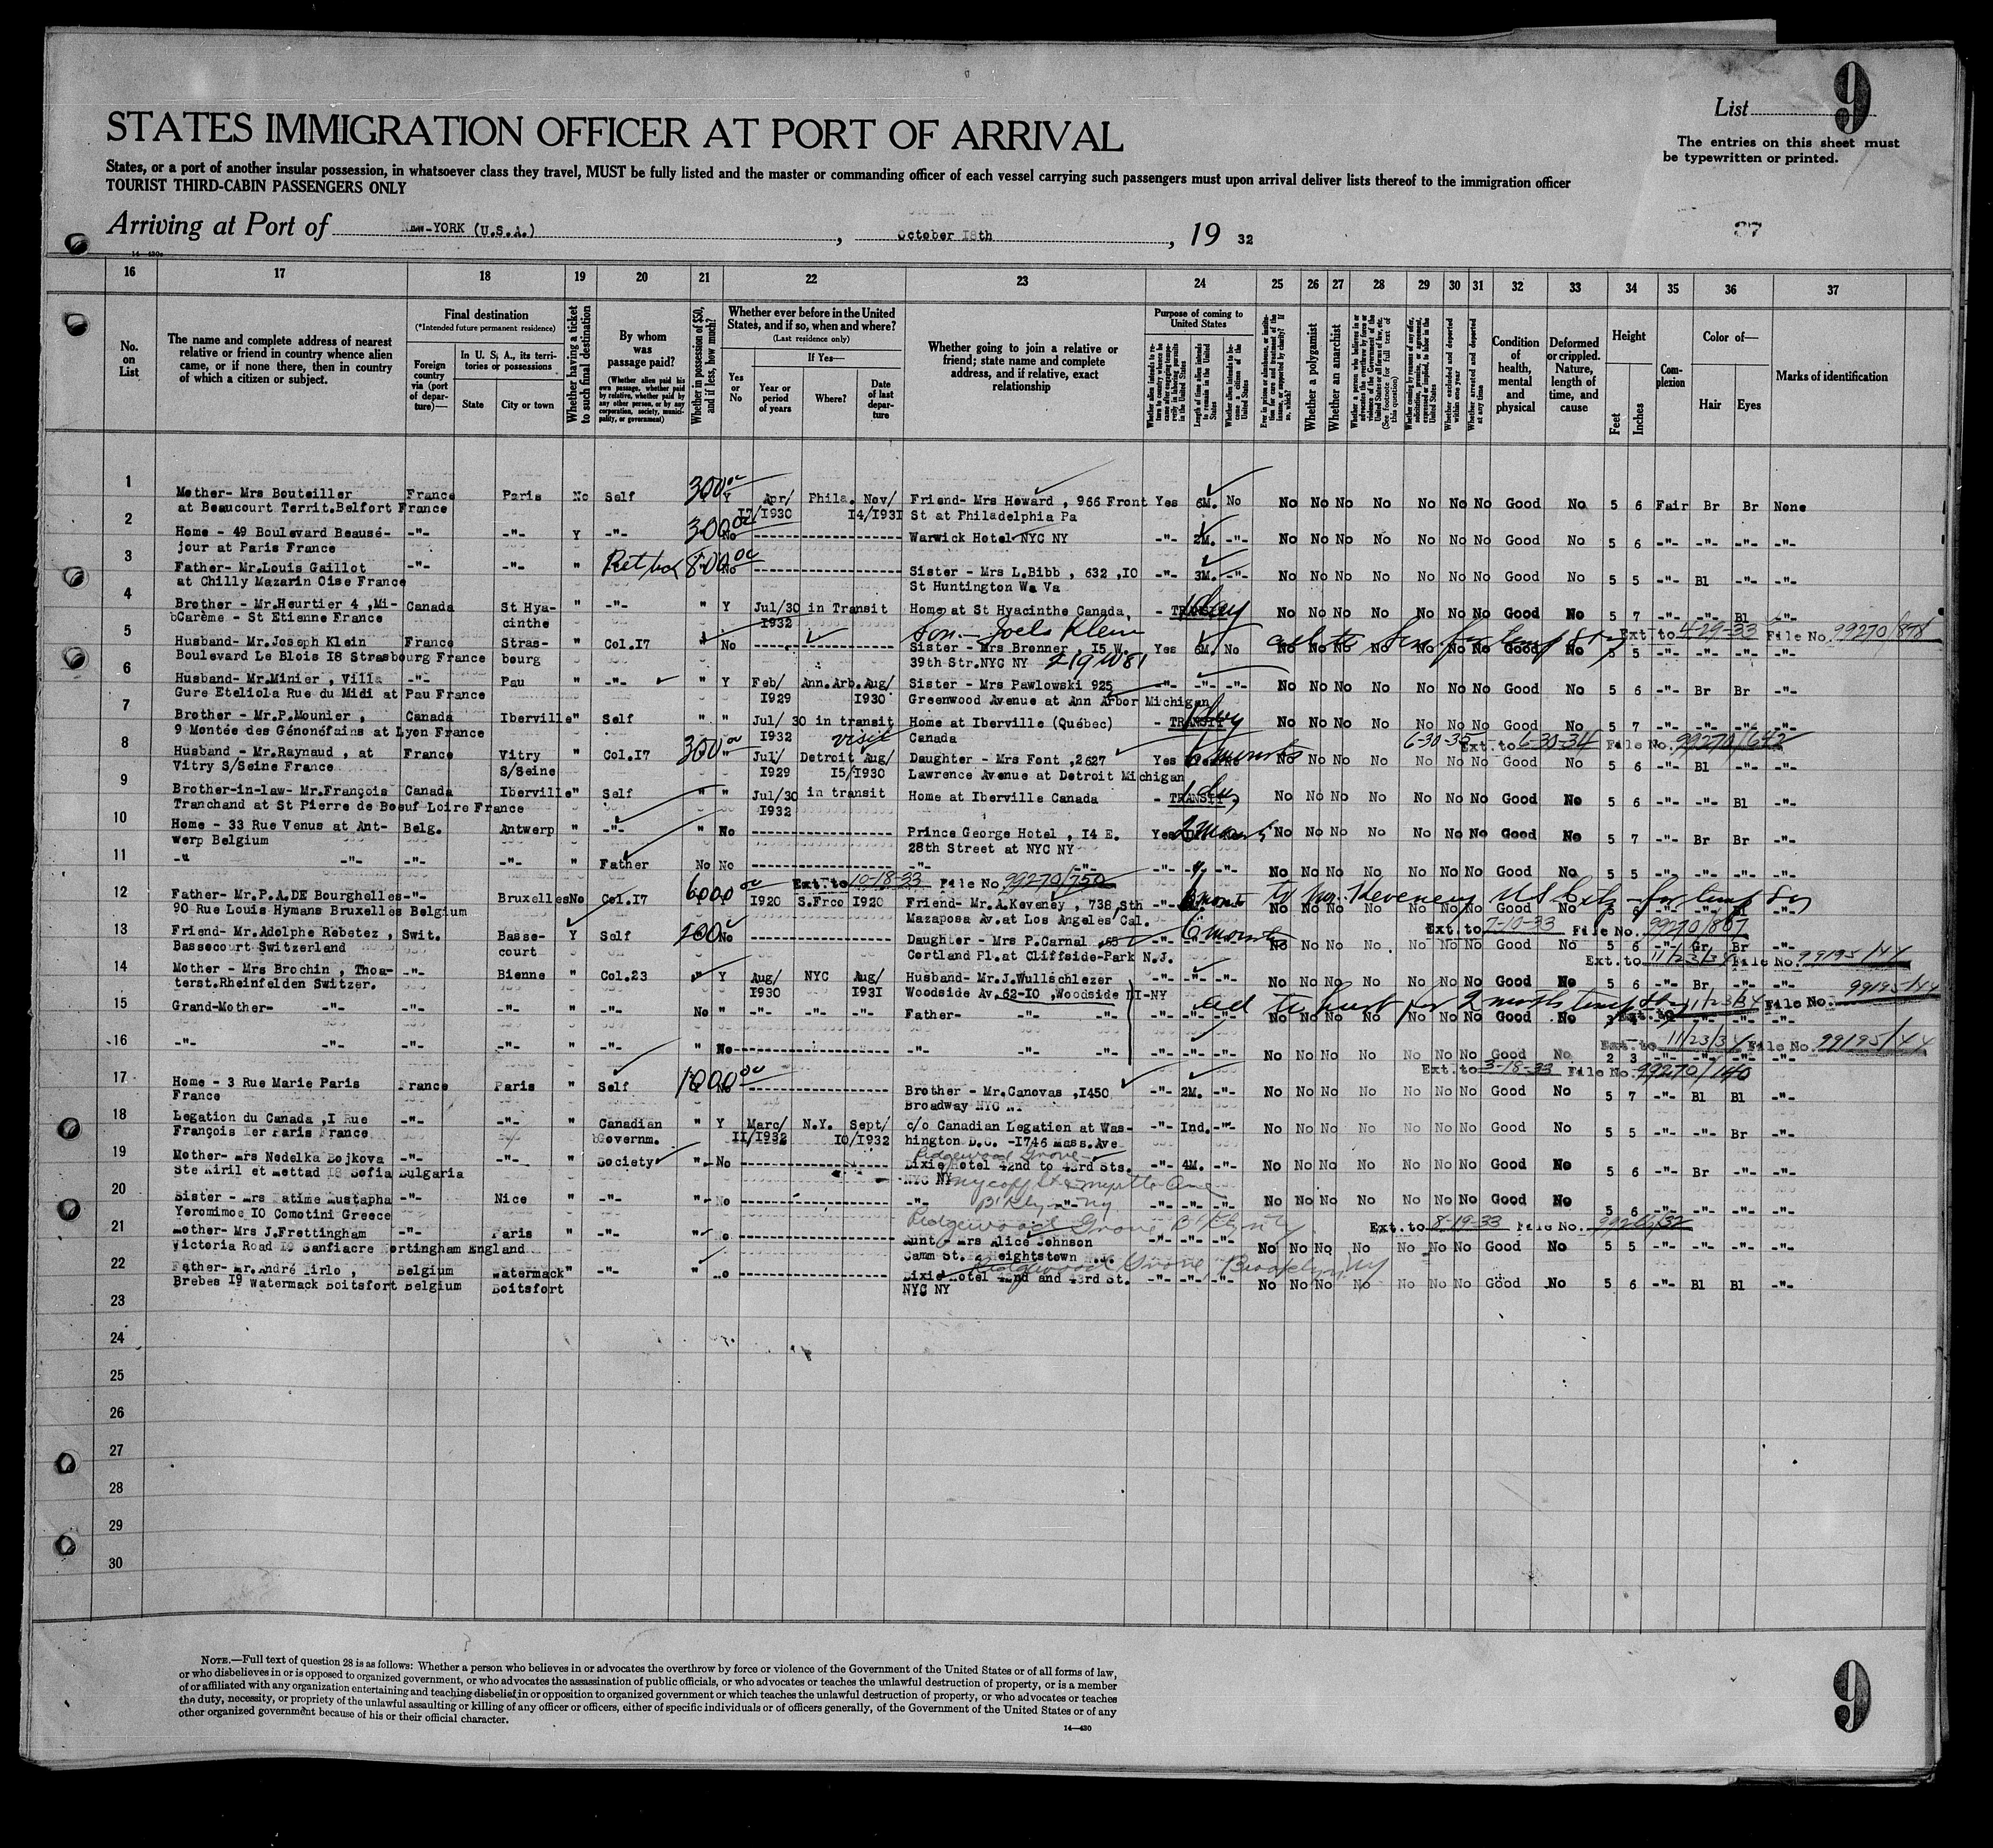 List 9
STATES IMMIGRATION OFFICER AT PORT OF ARRIVAL
The entries on this sheet must
be typewritten or printed.
States, or a port of another insular possession, in whatsoever class they travel, MUST be fully listed and the master or commanding officer of each vessel carrying such passengers must upon arrival deliver lists thereof to the immigration officer
TOURIST THIRD-CABIN PASSENGERS ONLY
Arriving at Port of New-YORK (U.S.A.) , October 18th , 19 32
37
16 17 18 19 20 21 22 23 24 25 26 27 28 29 30 31 32 33 34 35 36 37
No. on List
The name and complete address of nearest relative or friend in country whence alien came, or if none there, then in country of which a citizen or subject.
Final destination
(*Intended future permanent residence)
Foreign country via (port of departure)—
In U. S. A., its territories or possessions
State
City or town
Whether having a ticket to such final destination
By whom was passage paid?
(Whether alien paid his own passage, whether paid by relative, whether paid by any other person, or by any corporation, society, municipality, or government)
Whether in possession of $50, and if less, how much?
Whether ever before in the United States, and if so, when and where?
(Last residence only)
Yes or No
If Yes—
Year or period of years
Where?
Date of last departure
Whether going to join a relative or friend; state name and complete address, and if relative, exact relationship
Purpose of coming to United States
Length of time alien intends to remain in the United States
Whether alien intends to become a citizen of the United States
Whether a polygamist
Whether an anarchist
Whether excluded and deported within one year
Whether arrested and deported at any time
Condition of health, mental and physical
Deformed or crippled. Nature, length of time, and cause
Height
Feet
Inches
Complexion
Color of—
Hair
Eyes
Marks of identification
1 Mother- Mrs Bouteiller France Paris No Self 300 00 Y Apr/ Phila. Nov/ Friend- Mrs Howard , 966 Front Yes 6M. No No No No No No No No Good No 5 6 Fair Br Br None
at Beaucourt Territ.Belfort France 17/1930 14/1931 St at Philadelphia Pa
2 Home - 49 Boulevard Beausé- -"- -"- Y -"- 300 00 No Warwick Hotel NYC NY -"- 2M. -"- No No No No No No No Good No 5 6 -"- -"- -"- -"-
jour at Paris France
3 Father- Mr.Louis Gaillot -"- -"- " 800 00 No Sister - Mrs L.Bibb , 632 ,10 -"- 3M. -"- No No No No No No No Good No 5 5 -"- Bl -"- -"-
at Chilly Mazarin Oise France St Huntington Wa Va
4 Brother - Mr.Heurtier 4 ,Mi- Canada St Hya- " -"- " Y Jul/30 in Transit Home at St Hyacinthe Canada. - TRANSIT 1 day No No No No No No No Good No 5 7 -"- -"- Bl -"-
Carème - St Etienne France cinthe 1932
Son - Joels Klein
Ext.to 4-29-33 File No. 99270/878
5 Husband- Mr.Joseph Klein France Stras- " Col.17 " No Sister - Mrs Brenner , 15 W. Yes 6M. No No No No No No No No Good No 5 5 -"- -"- -"- -"-
Boulevard Le Blois 18 Strasbourg France bourg 39th Str.NYC NY 219 W 81
6 Husband- Mr.Minier , Villa -"- Pau " -"- " Y Feb/ Ann.Arb.Aug/ Sister - Mrs Pawlowski 925 -"- -"- -"- No No No No No No No Good No 5 6 -"- Br Br -"-
Gure Eteliola Rue du Midi at Pau France 1929 1930 Greenwood Avenue at Ann Arbor Michigan
7 Brother - Mr.P.Mounier , Canada Iberville " Self " " Jul/ 30 in transit Home at Iberville (Québec) - TRANSIT 1 day No No No No No No No Good No 5 7 -"- -"- -"- -"-
9 Montée des Génonéfains at Lyon France 1932 visit Canada
6-30-35 Ext.to 6-30-34 File No. 99270/642
8 Husband - Mr.Raynaud , at France Vitry " Col.17 300 00 " Jul/ Detroit Aug/ Daughter - Mrs Font ,2627 Yes 6 months No No No No No No No Good No 5 6 -"- Bl -"- -"-
Vitry S/Seine France S/Seine 1929 15/1930 Lawrence Avenue at Detroit Michigan
9 Brother-in-law- Mr.François Canada Iberville " Self " " Jul/30 in transit Home at Iberville Canada - TRANSIT 1 day No No No No No No No Good No 5 6 -"- -"- Bl -"-
Tranchand at St Pierre de Boeuf Loire France 1932
10 Home - 33 Rue Venus at Ant- Belg. Antwerp " -"- " No Prince George Hotel , 14 E. Yes 2 months No No No No No No No Good No 5 7 -"- Br Br -"-
werp Belgium 28th Street at NYC NY
11 -" -"- -"- -"- " Father No No -"- -"- -"- No No No No No No No Good No 5 5 -"- -"- -"- -"-
Ext.to 10-18-33 File No. 99270/750
12 Father- Mr.P.A.DE Bourghelles -"- Bruxelles No Col.17 6000 00 Y 1920 S.Frco 1920 Friend- Mr.A.Keveney , 738,Sth -"- No No No No No No No Good No 5 6 -"- -"- Bl -"-
90 Rue Louis Hymans Bruxelles Belgium Mazaposa Av.at Los Angeles Cal.
Ext.to 7-10-33 File No. 99270/867
13 Friend- Mr.Adolphe Rebetez , Swit. Basse- Y Self 100 No Daughter - Mrs P.Carnal ,65 -"- 6 months No No No No No No No Good No 5 6 -"- Gr Br -"-
Bassecourt Switzerland court Cortland Pl.at Cliffside-Park N.J.
Ext.to 11/23/34 File No. 99195/44
14 Mother - Mrs Brochin , Thoa- -"- Bienne " Col.23 " Y Aug/ NYC Aug/ Husband- Mr.J.Wullschlezer -"- -"- -"- No No No No No No No Good No 5 6 -"- Br -"- -"-
terst.Rheinfelden Switzer. 1930 1931 Woodside Av.62-10 ,Woodside LI-NY
Ext.to 11/23/34 File No. 99195/44
15 Grand-Mother- -"- -"- -"- " No " -"- -"- -"- Father- -"- -"- -"- -"- -"- No No No No No No No Good No 3 4 -"- -"- -"- -"-
Ext.to 11/23/34 File No. 99195/44
16 -"- -"- -"- -"- " " No -"- -"- -"- -"- -"- -"- No No No No No No No Good No 2 3 -"- -"- -"- -"-
Ext.to 3-18-33 File No. 99270/140
17 Home - 3 Rue Marie Paris France Paris " Self 1000 00 No Brother - Mr.Canovas ,1450 -"- 2M. -"- No No No No No No No Good No 5 7 -"- Bl Bl -"-
France Broadway NYC NY
18 Legation du Canada ,1 Rue -"- -"- " Canadian " Y Marc/ N.Y. Sept/ c/o Canadian Legation at Was- -"- Ind. -"- No No No No No No No Good No 5 5 -"- -"- Br -"-
François 1er Paris France Governm. 11/1932 10/1932 hington D.C. -1746 Mass.Ave
Ridgewood Grove
19 Mother- Mrs Nedelka Bojkova -"- -"- " Society " No Dixie Hotel 42nd to 43rd Sts. -"- 4M. -"- No No No No No No No Good No 5 6 -"- Br -"- -"-
Ste Kiril et Mettad 18 Sofia Bulgaria NYC NY Wycoff St & Myrtle Ave
20 Sister - Mrs Fatime Mustapha -"- Nice " -"- " No -"- B'klyn NY -"- -"- -"- No No No No No No No Good No 5 6 -"- -"- -"- -"-
Yeromimoe 10 Comotini Greece
Ridgewood Grove B'klyn NY
Ext.to 8-19-33 File No.
21 Mother- Mrs J.Frettingham -"- Paris " -"- " No Aunt - Mrs Alice Johnson -"- -"- -"- No No No No No No No Good No 5 5 -"- -"- -"- -"-
Victoria Road 19 Sanfiacre Nortingham England Camm St. Heightstown
Ridgewood Grove Brooklyn NY
22 Father- Mr.André Tirlo , Belgium Watermack " -"- " No Dixie Hotel 42nd and 43rd St. -"- -"- -"- No No No No No No No Good No 5 6 -"- Bl Bl -"-
Brebes 19 Watermack Boitsfort Belgium Boitsfort NYC NY
23
24
25
26
27
28
29
30
NOTE.—Full text of question 28 is as follows: Whether a person who believes in or advocates the overthrow by force or violence of the Government of the United States or of all forms of law,
or who disbelieves in or is opposed to organized government, or who advocates the assassination of public officials, or who advocates or teaches the unlawful destruction of property, or is a member
of or affiliated with any organization entertaining and teaching disbelief in or opposition to organized government or which teaches the unlawful destruction of property, or who advocates or teaches
the duty, necessity, or propriety of the unlawful assaulting or killing of any officer or officers, either of specific individuals or of officers generally, of the Government of the United States or of any
other organized government because of his or their official character.
14—430
9